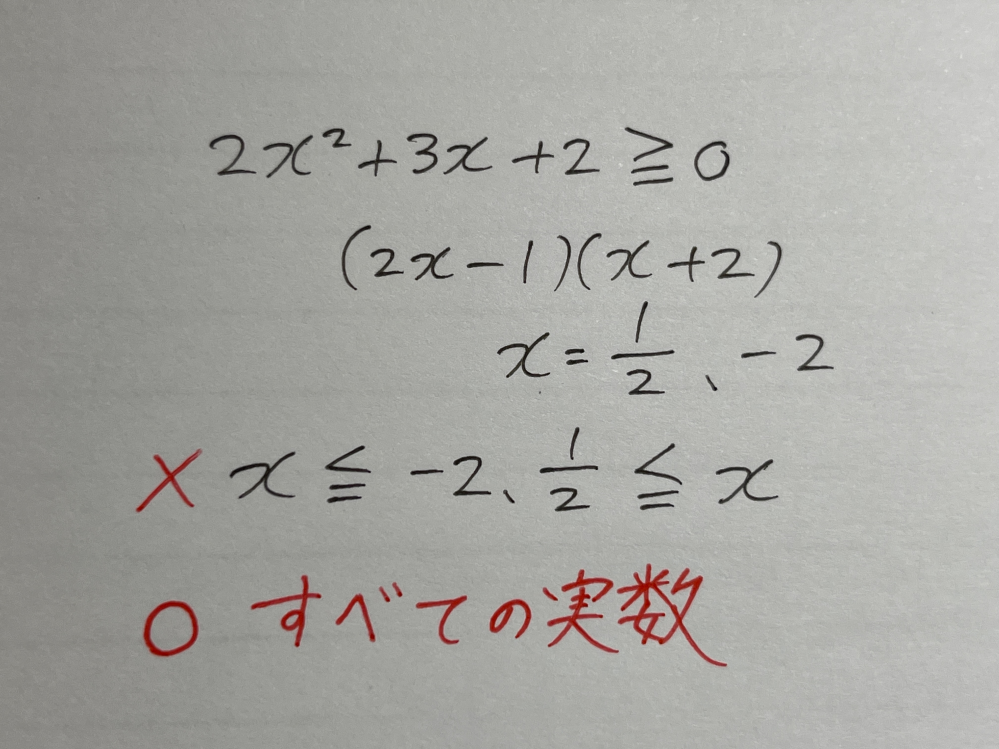 2x²+3x+2≧0
(2x-1)(x+2)
x=1/2、-2
× x≦-2、1/2≦x
○ すべての実数